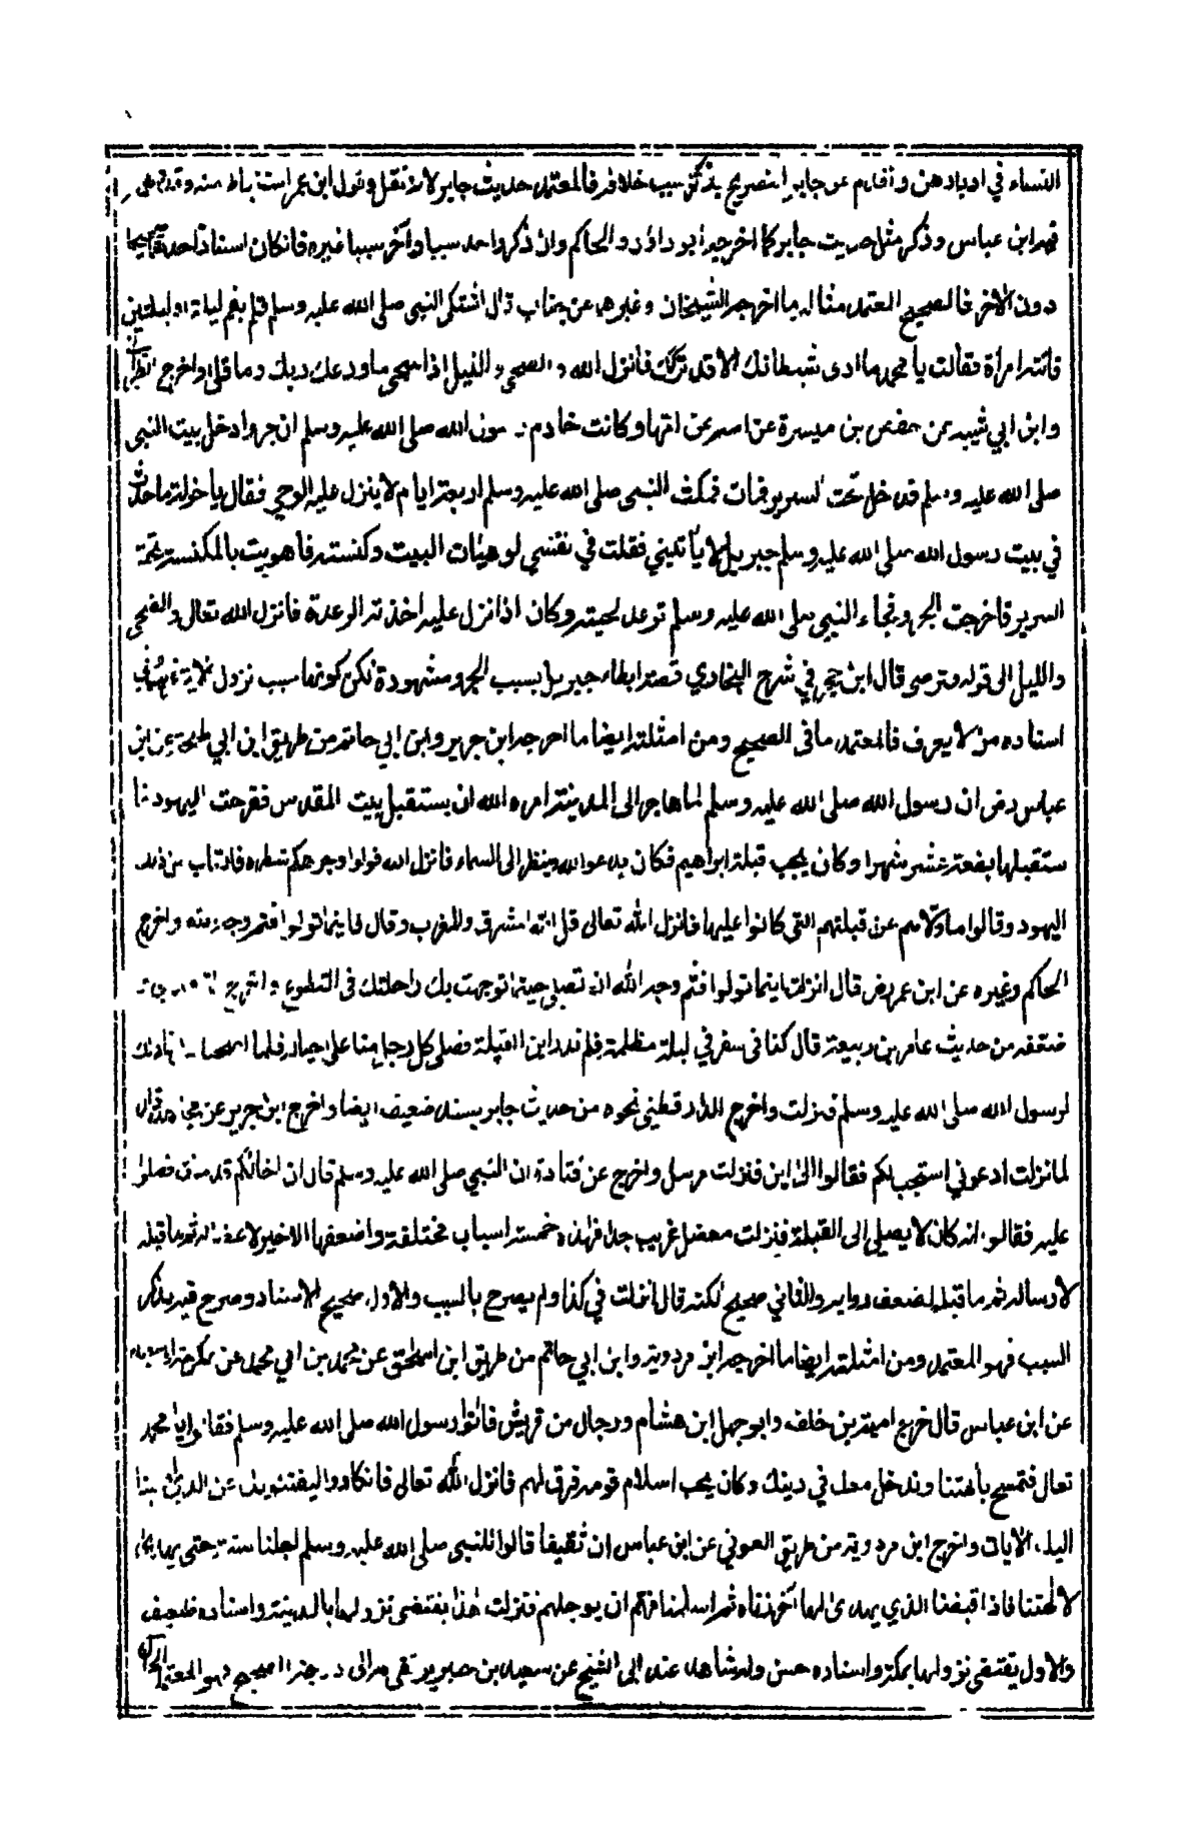 النساء في ادبارهن وتقدم عن جابر التصريح بذكر سبب خلافه فالمعتمد حديث جابر لانه نقل وقول ابن عمر استنباط منه وقد وهمه
فيه ابن عباس وذكر مثل حديث جابر كما اخرجه ابو داؤد والحاكم وان ذكر واحد سببا وآخر سببا غيره فانكان اسناد احدهما صحيحا
دون الآخر فالصحيح المعتمد مثاله ما اخرجه الشيخان وغيرهما عن جندب قال اشتكى النبي صلى الله عليه وسلم فلم يقم ليلة او ليلتين
فاتته امرأة فقالت يا محمد ما ارى شيطانك الا قد تركك فانزل الله والضحى والليل اذا سجى ما ودعك ربك وما قلى واخرج الطبراني
وابن ابي شيبة عن حفص بن ميسرة عن امه عن امها وكانت خادم رسول الله صلى الله عليه وسلم ان جروا دخل بيت النبي
صلى الله عليه وسلم فدخل تحت السرير فمات فمكث النبي صلى الله عليه وسلم اربعة ايام لا ينزل عليه الوحي فقال يا خولة ما حدث
في بيت رسول الله صلى الله عليه وسلم جبريل لا يأتيني فقلت في نفسي لو هيأت البيت وكنسته فاهويت بالمكنسة تحت
السرير فاخرجت الجرو فجاء النبي صلى الله عليه وسلم ترعد لحيته وكان اذا نزل عليه اخذته الرعدة فانزل الله تعالى والضحى
والليل الى قوله فترضى قال ابن حجر في شرح البخاري قصة ابطاء جبريل بسبب الجرو مشهورة لكن كونها سبب نزول الآية غريب في
اسناده من لا يعرف فالمعتمد ما في الصحيح ومن امثلته ايضا ما اخرجه ابن جرير وابن ابي حاتم من طريق ابن ابي طلحة عن ابن
عباس رض ان رسول الله صلى الله عليه وسلم لما هاجر الى المدينة امره الله ان يستقبل بيت المقدس ففرحت اليهود فا
ستقبلها بضعة عشر شهرا وكان يحب قبلة ابراهيم فكان يدعو الله وينظر الى السماء فانزل الله فولوا وجوهكم شطره فارتاب من ذلك
اليهود وقالوا ما ولاهم عن قبلتهم التي كانوا عليها فانزل الله تعالى قل لله المشرق والمغرب وقال فاينما تولوا فثم وجه الله واخرج
الحاكم وغيره عن ابن عمر رض قال انزلت اينما تولوا فثم وجه الله ان تصلي حيثما توجهت بك راحلتك في التطوع واخرج
ضعفه من حديث عامر بن ربيعة قال كنا في سفر في ليلة مظلمة فلم ندر اين القبلة فصلى كل رجل منا على حياله فلما اصبحنا ذكرنا ذلك
لرسول الله صلى الله عليه وسلم فنزلت واخرج الدارقطني نحوه من حديث جابر بسند ضعيف ايضا واخرج ابن جرير عن مجاهد قال
لما نزلت ادعوني استجب لكم فقالوا الى اين فنزلت مرسل واخرج عن قتادة ان النبي صلى الله عليه وسلم قال ان اخالكم قد مات فصلوا
عليه فقالوا انه كان لا يصلي الى القبلة فنزلت معضل غريب جدا فهذه خمسة اسباب مختلفة واضعفها الاخير لاعضاله ثم ما قبله
لارساله ثم ما قبله لضعف رواته والثاني صحيح لكنه قال انزلت في كذا ولم يصرح بالسبب والاول صحيح الاسناد وصرح فيه بذكر
السبب فهو المعتمد ومن امثلته ايضا ما اخرجه ابن مردويه وابن ابي حاتم من طريق ابن اسحق عن محمد بن ابي محمد عن عكرمة او سعيد
عن ابن عباس قال خرج امية بن خلف وابو جهل ابن هشام ورجال من قريش فاتوا رسول الله صلى الله عليه وسلم فقالوا يا محمد
تعال فتمسح بآلهتنا وندخل معك في دينك وكان يحب اسلام قومه فرق لهم فانزل الله تعالى فانكادوا ليفتنونك عن الذي اوحينا
اليك الآيات واخرج ابن مردويه من طريق العوفي عن ابن عباس ان ثقيفا قالوا للنبي صلى الله عليه وسلم اجلنا سنة حتى يهدى
لآلهتنا فاذا قبضنا الذي يهدى لها آخذناه ثم اسلمنا فهم ان يوجلهم فنزلت هذا يقتضى نزولها بالمدينة واسناده ضعيف
والاول يقتضى نزولها بمكة واسناده حسن وله شاهد عند ابي الشيخ عن سعيد بن جبير يرتقى به الى درجة الصحيح فهو المعتمد الحال